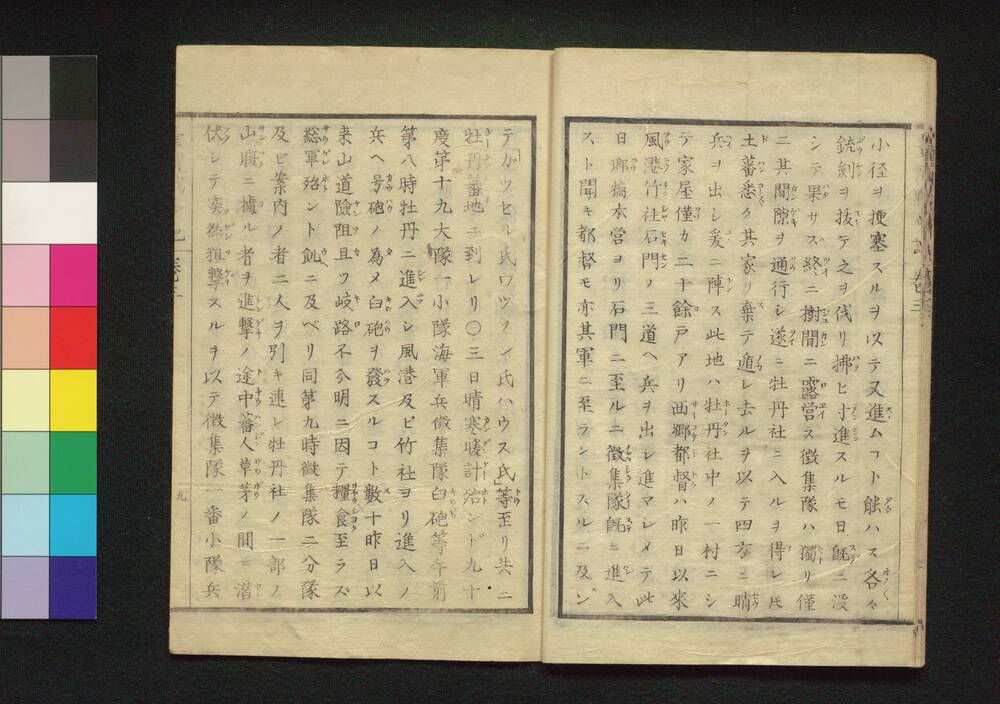 小径ヲ挭塞スルヲ以テ又進ムコト能ハス各々
銃劍ヲ拔テ之ヲ伐リ拂ヒ寸進スルモ日既ニ没
シテ果サス終ニ樹間ニ露営ス徴集隊ハ獨リ僅
ニ其間隙ヲ通行シ遂ニ牡丹社ニ入ルヲ得レ𪜈
土蕃悉ク其家ヲ棄テ遁レ去ルヲ以テ四方ニ哨
兵ヲ出シ爰ニ陣ス此地ハ牡丹社中ノ一村ニシ
テ家屋僅カ二十餘戸アリ西郷都督ハ昨日以來
風港竹社石門ノ三道ヘ兵ヲ出シ進マシメテ此
日瑯橋本営ヨリ石門ニ至ルニ徴集隊既ニ進入
スト聞キ都督モ亦其軍ニ至ラントスルニ及ン
テ「カツセル氏ワツソン氏ハウス氏」等至リ共ニ
牡丹蕃地ニ到レリ〇三日晴寒暖計殆ンド九十
度第十九大隊一小隊海軍兵徴集隊臼砲等午前
第八時牡丹ニ進入シ風港及ビ竹社ヨリ進入ノ
兵ヘ号砲ノ為メ臼砲ヲ發スルコト數十昨日以
来山道險阻且ツ岐路不分明ニ因テ糧食至ラズ
総軍殆ント飢ニ及ベリ同第九時徴集隊二分隊
及ビ案内ノ者二人ヲ引キ連レ牡丹社ノ一部ノ
山嶽ニ據ル者ヲ進撃ノ途中蕃人草茅ノ間ニ潜
伏シテ突然狙撃スルヲ以テ徴集隊一番小隊兵
卷三
九